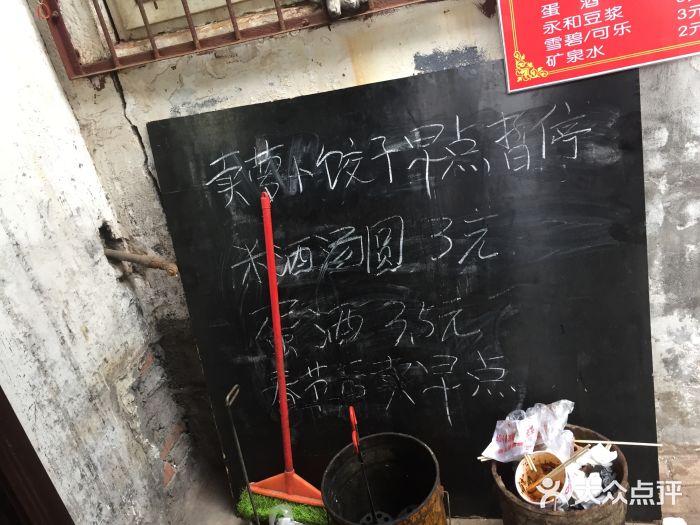 蛋 酒
永和豆浆 3元
雪碧/可乐 2元
矿泉水
卖萝卜饺子早点暂停
米酒汤圆 3元
蛋酒 3.5元
春节后卖早点
大众点评